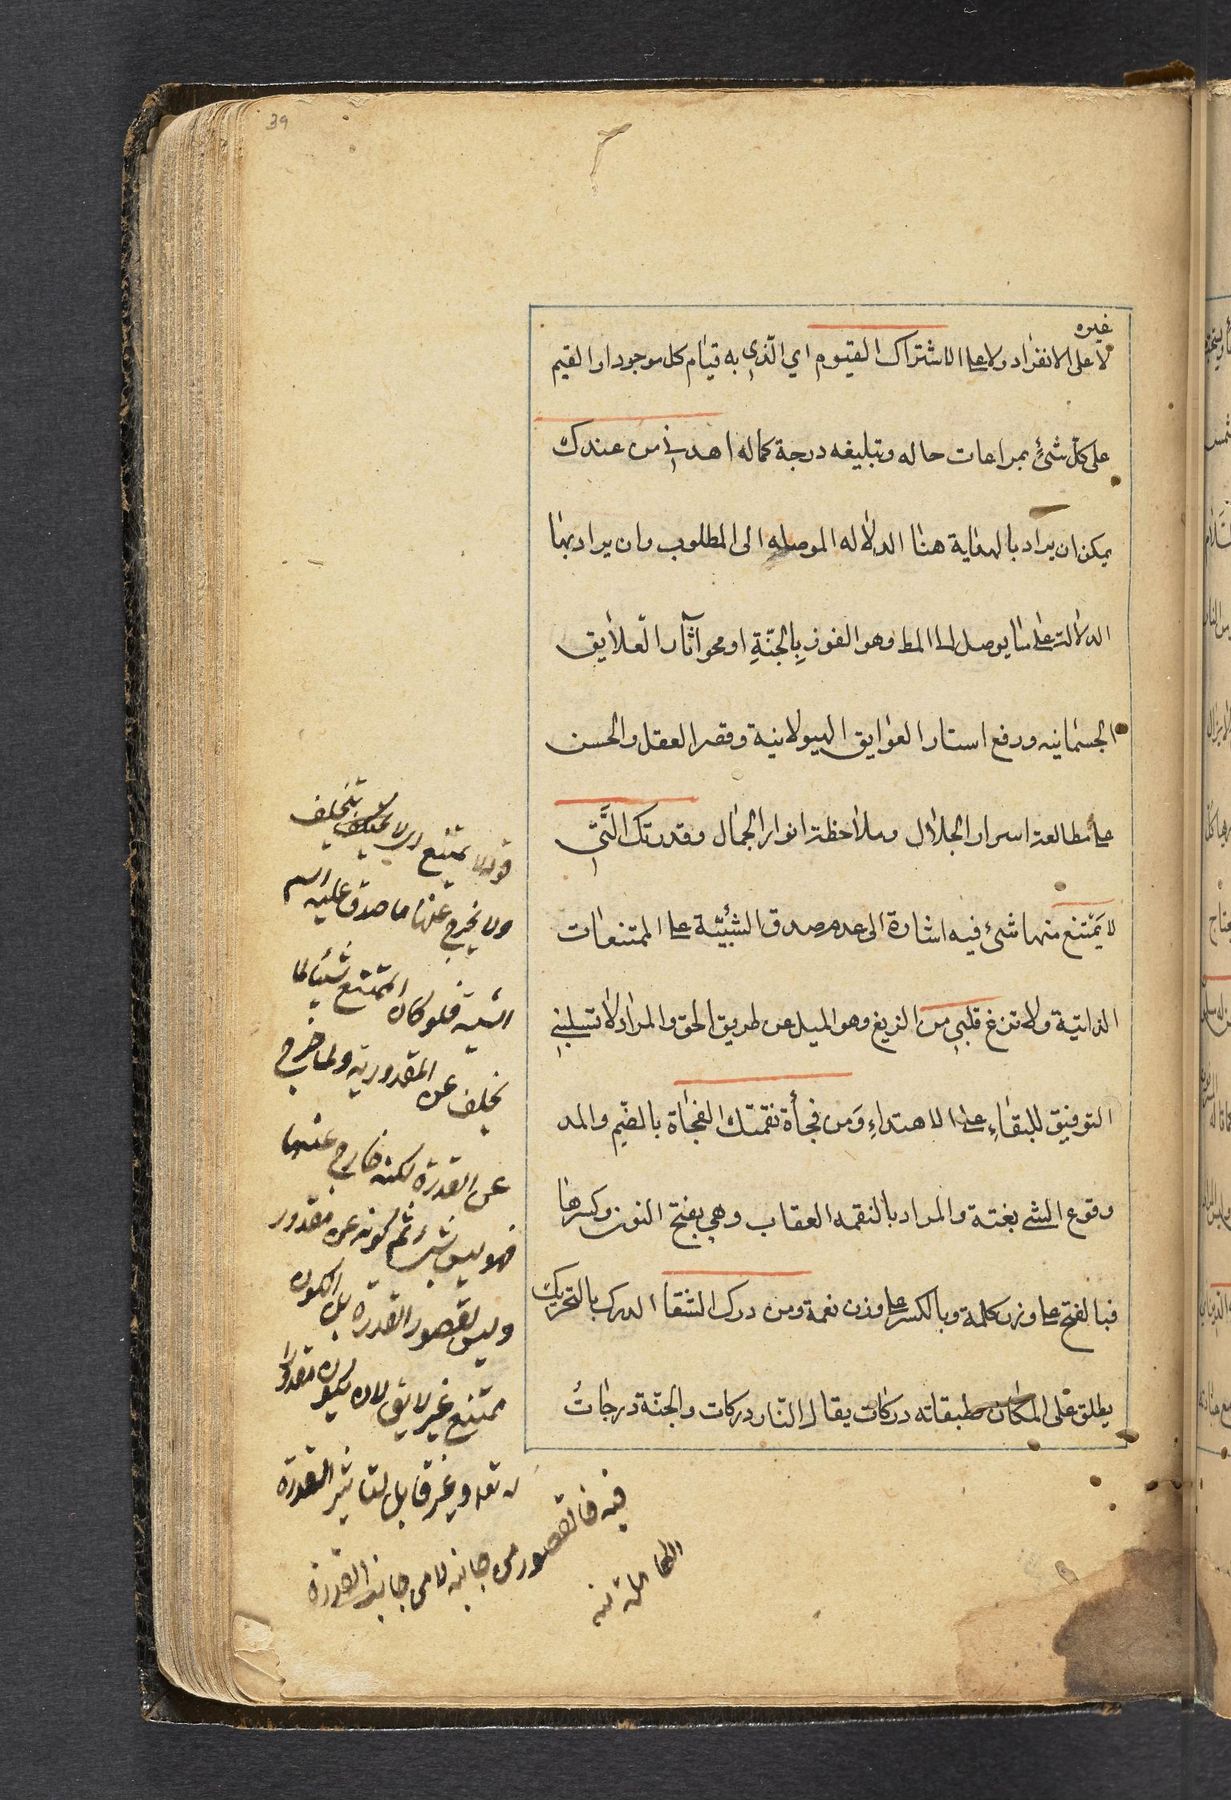 39
غيره
لا على الانفراد ولا على الاشتراك القيّوم اي الّذي به قيام كل موجود او القيم
على كلّ شئ بمراعات حاله وتبليغه درجة كماله اهدني من عندك
يمكن ان يراد بالهداية هنا الدلاله الموصله الى المطلوب وان يراد بها
الدلالة على ما يوصل الى المط وهو الفوز بِالجنّةِ او محو آثار العلايق
الجسمانيه ورفع استار العوايق الهيولانية وقصر العقل والحسن
على مطالعة اسرار الجلال وملاحظة انوار الجمال وقدرتك الّتي
لا يَمْتنع منها شئ فيه اشارة الى عدم صدق الشيئيّة على الممتنعات
الذاتية ولا تزغ قلبي من الزيغ وهو الميل عن طريق الحق والمراد لا تسلبني
التوفيق للبقاءِ على الاهتداءِ وَمن فجأة نقمتك الفجاة بالضّم والمد
وقوع الشئ بغتة والمراد بالنقمه العقاب وهي بفتح النون وكسرها
فبالفتح على وزن كلمة وبالكسر على وزن نعمة ومن درك الشقا الدرك بالتحريك
يطلق على المكان طبقاته دركات يقال النّار دركات والجنّة درجات
قوله لا يمتنع اى لا يتخلف
ولا يخرج عنها ما صدق عليه اسم
الشئ فلو كان الممتنع شيئا لما
تخلف عن المقدورية ولما خرج
عن القدرة لكنه خارج عنها
فهو ليس بشئ ثم كونه غير مقدور
وليس لقصور القدرة بل لكون
ممتنع غير لايق لان يكون مقدورا
له تعه وغير قابل لتاثير القدرة
فيه فالقصور من جانبه لا من جانب القدرة
الكاملة منه